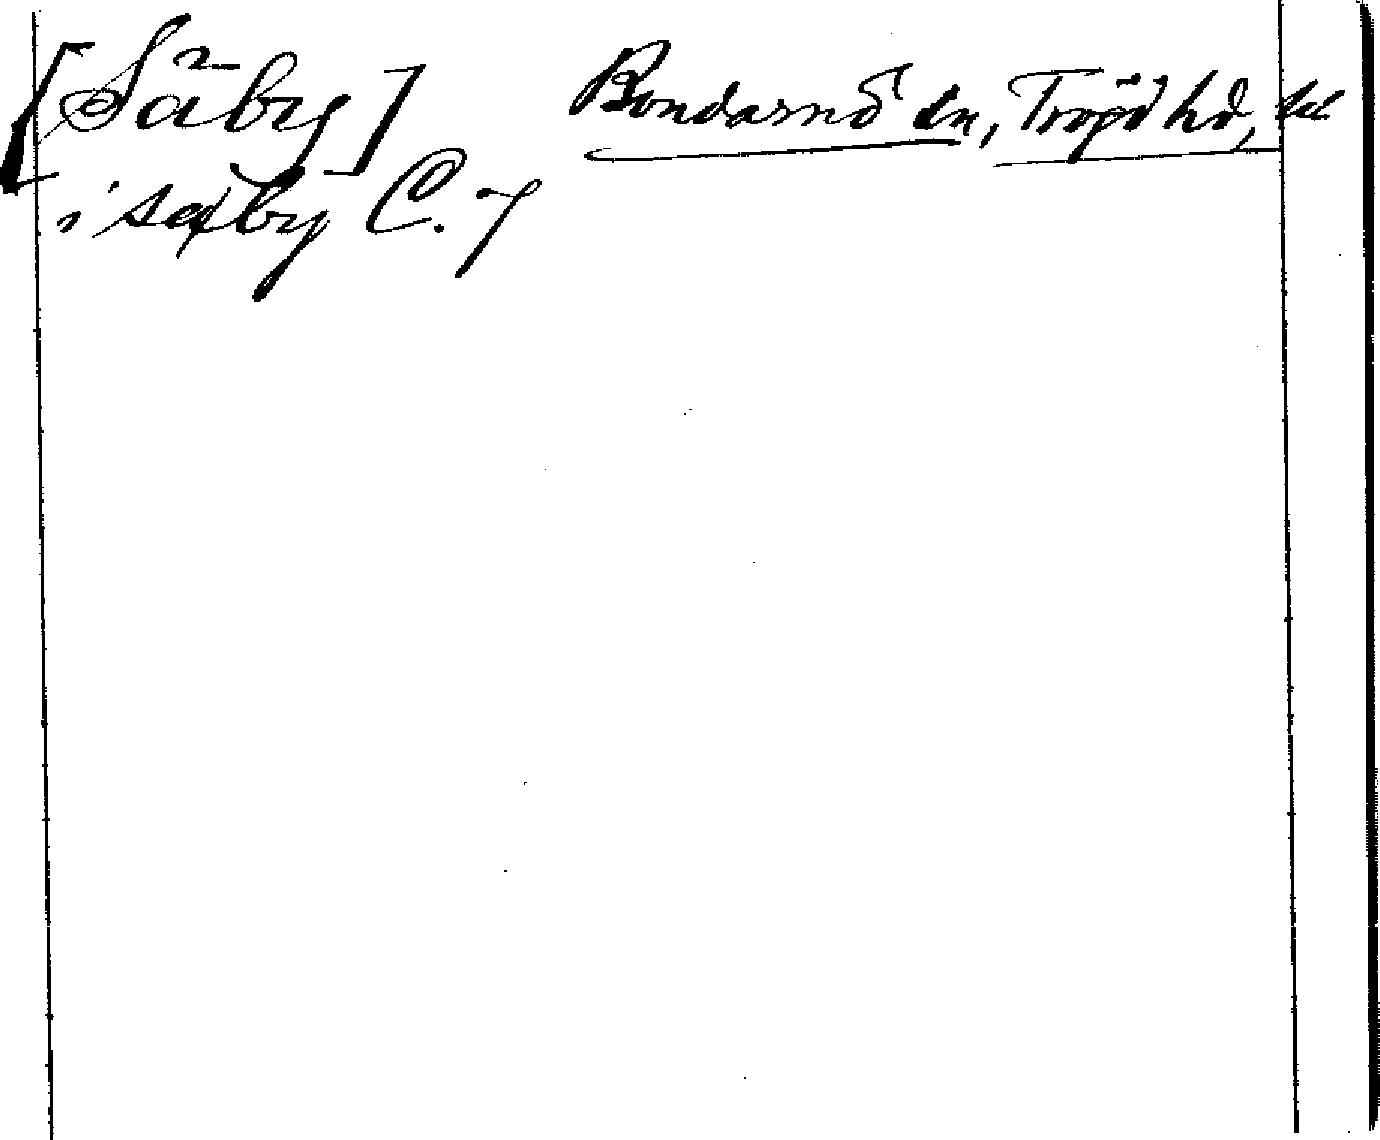 [Säby] Bondarnö sn, Trögd hd,
i sæby C. 7